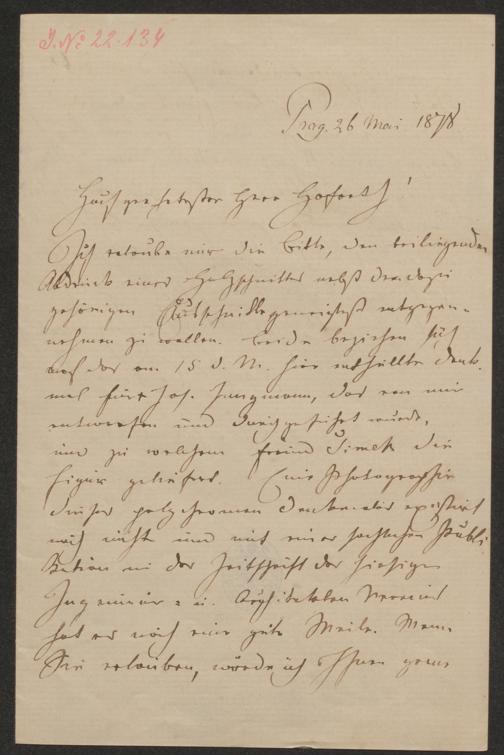 J. No 22.134
Prag. 26 Mai 1878
Hochgeehrtester Herr Hofrath!
Ich erlaube mir die Bitte, den beiliegenden
Abdruck eines Holzschnittes nebst dem dazu
gehörigen geneigtest entgegen-
nehmen zu wollen. Beide beziehen sich
auf das am 15 d. M. hier enthüllte Denk-
mal für Jos. Jungmann, das von mir
entworfen und durchgeführt wurde,
und zu welchem Freund Simek die
Figur geliefert. Eine Photographie
dieses polychromen Denkmales existirt
noch nicht und mit einer fachlichen Publi-
kation in der Zeitschrift des hiesigen
Ingenieur- u. Architekten Vereines
hat es noch eine gute Weile. Wenn
Sie erlauben, würde ich Ihnen gerne